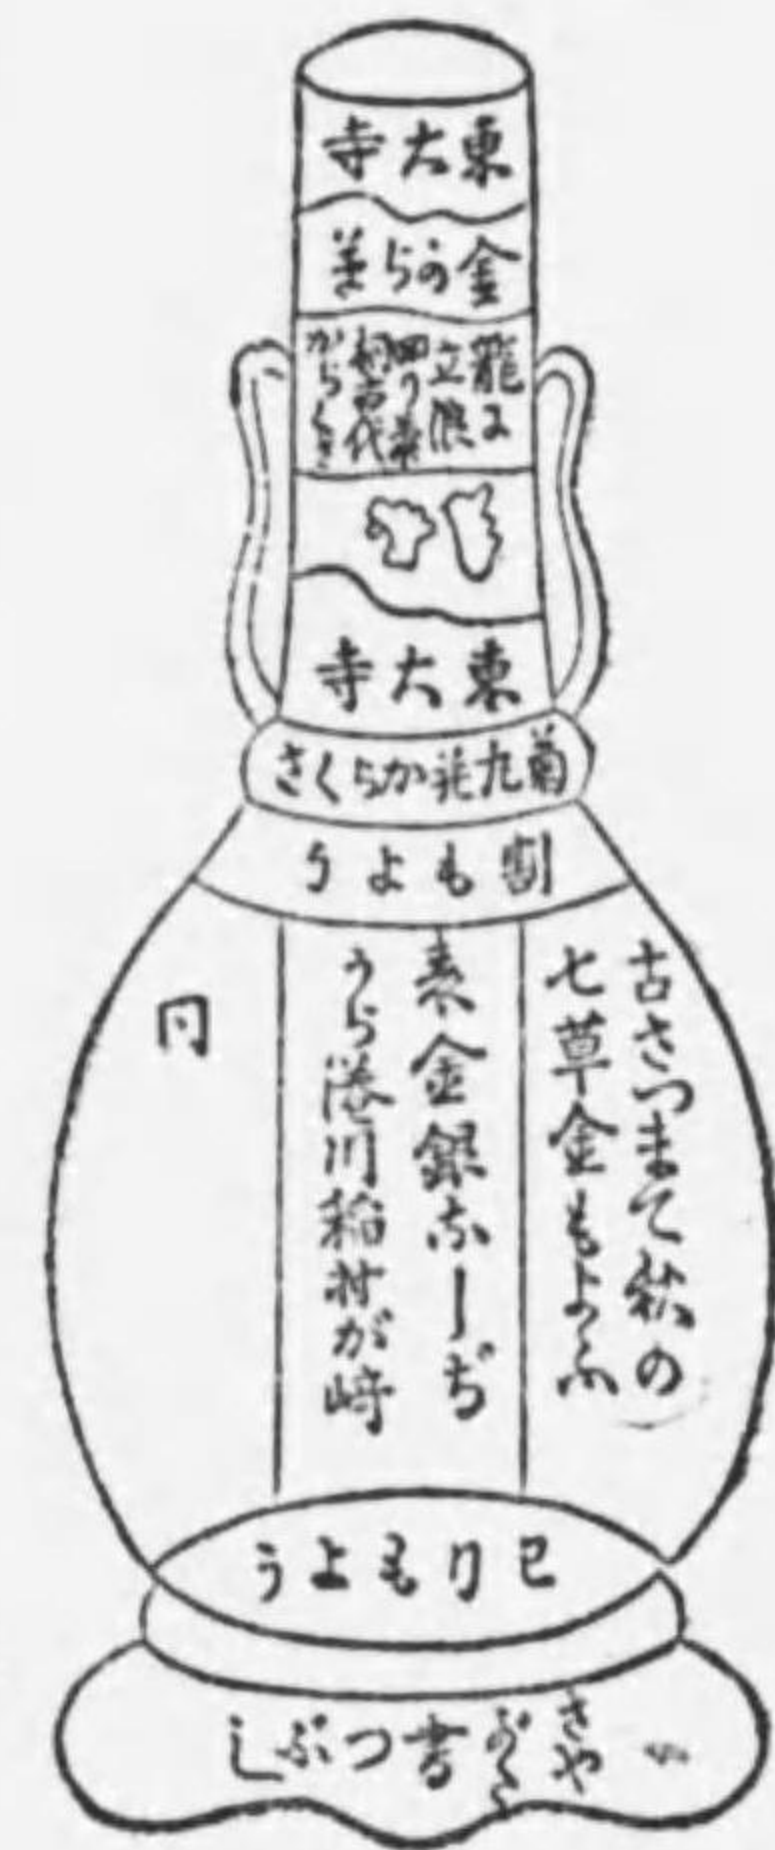 東大寺
金のら善
籠に
立浪
四つ菱
桐古代
からくさ
東大寺
菊九花からくさ
割もよう
古さつまて秋の
七草金もようふ
表金銀なしぢ
うら港川稲村が崎
同
わりもよう
きや
書つぶし